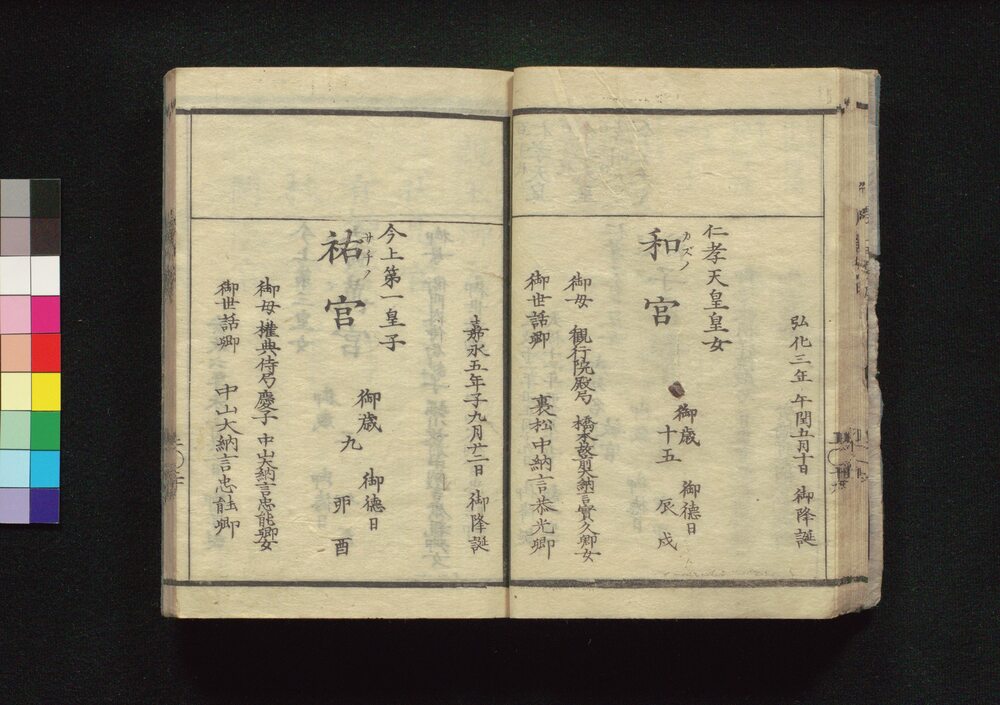 弘化三年午閏五月十日 御降誕
仁孝天皇皇女
カズノ
和宮
御歳 御德日
十五 辰戌
御母 観行院殿局 橋本故前大納言實久卿女
御世話卿 裏松中納言恭光卿
嘉永五年子九月廿二日 御降誕
今上第一皇子
サチノ
祐宮
御歳 御德日
九 卯酉
御母 權典侍局慶子 中山大納言忠能卿女
御世話卿 中山大納言忠能卿